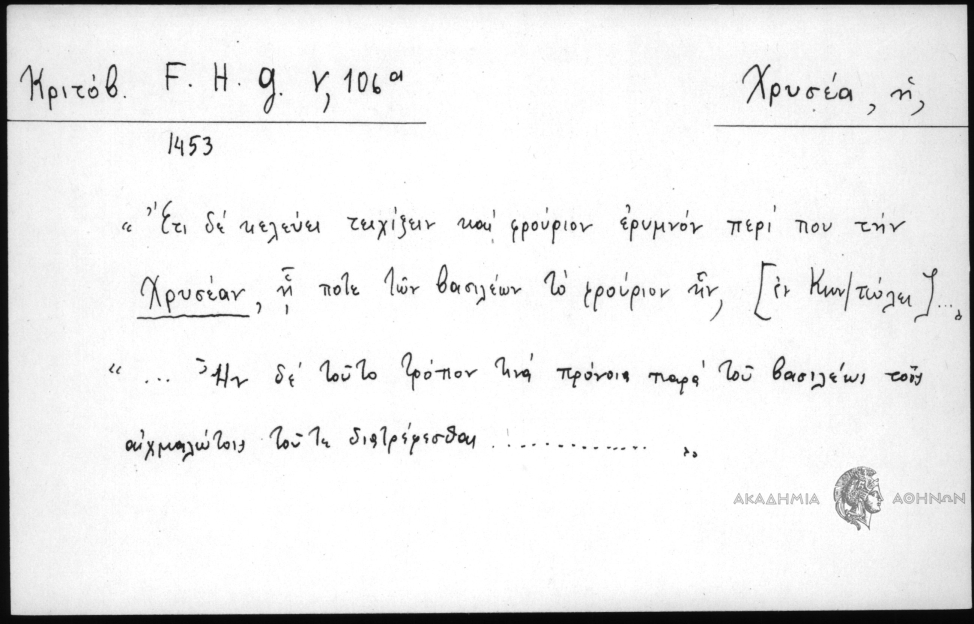 Κριτόβ. F. H. g. v, 106α
Χρυσέα, ἡ,
1453
«Ἔτι δέ κελεύει τειχίζειν καί φρούριον ἐρυμνόν περί που τήν
Χρυσέαν, ᾗ ποτε τῶν βασιλέων τό φρούριον ἦν, [ἐν Κων/πόλει]...»
«... Ἦν δέ τοῦτο τρόπον τινά πρόνοια παρά τοῦ βασιλέως τοῖς
αἰχμαλώτοις τοῦ τε διατρέφεσθαι ................ »
ΑΚΑΔΗΜΙΑ ΑΘΗΝΩΝ